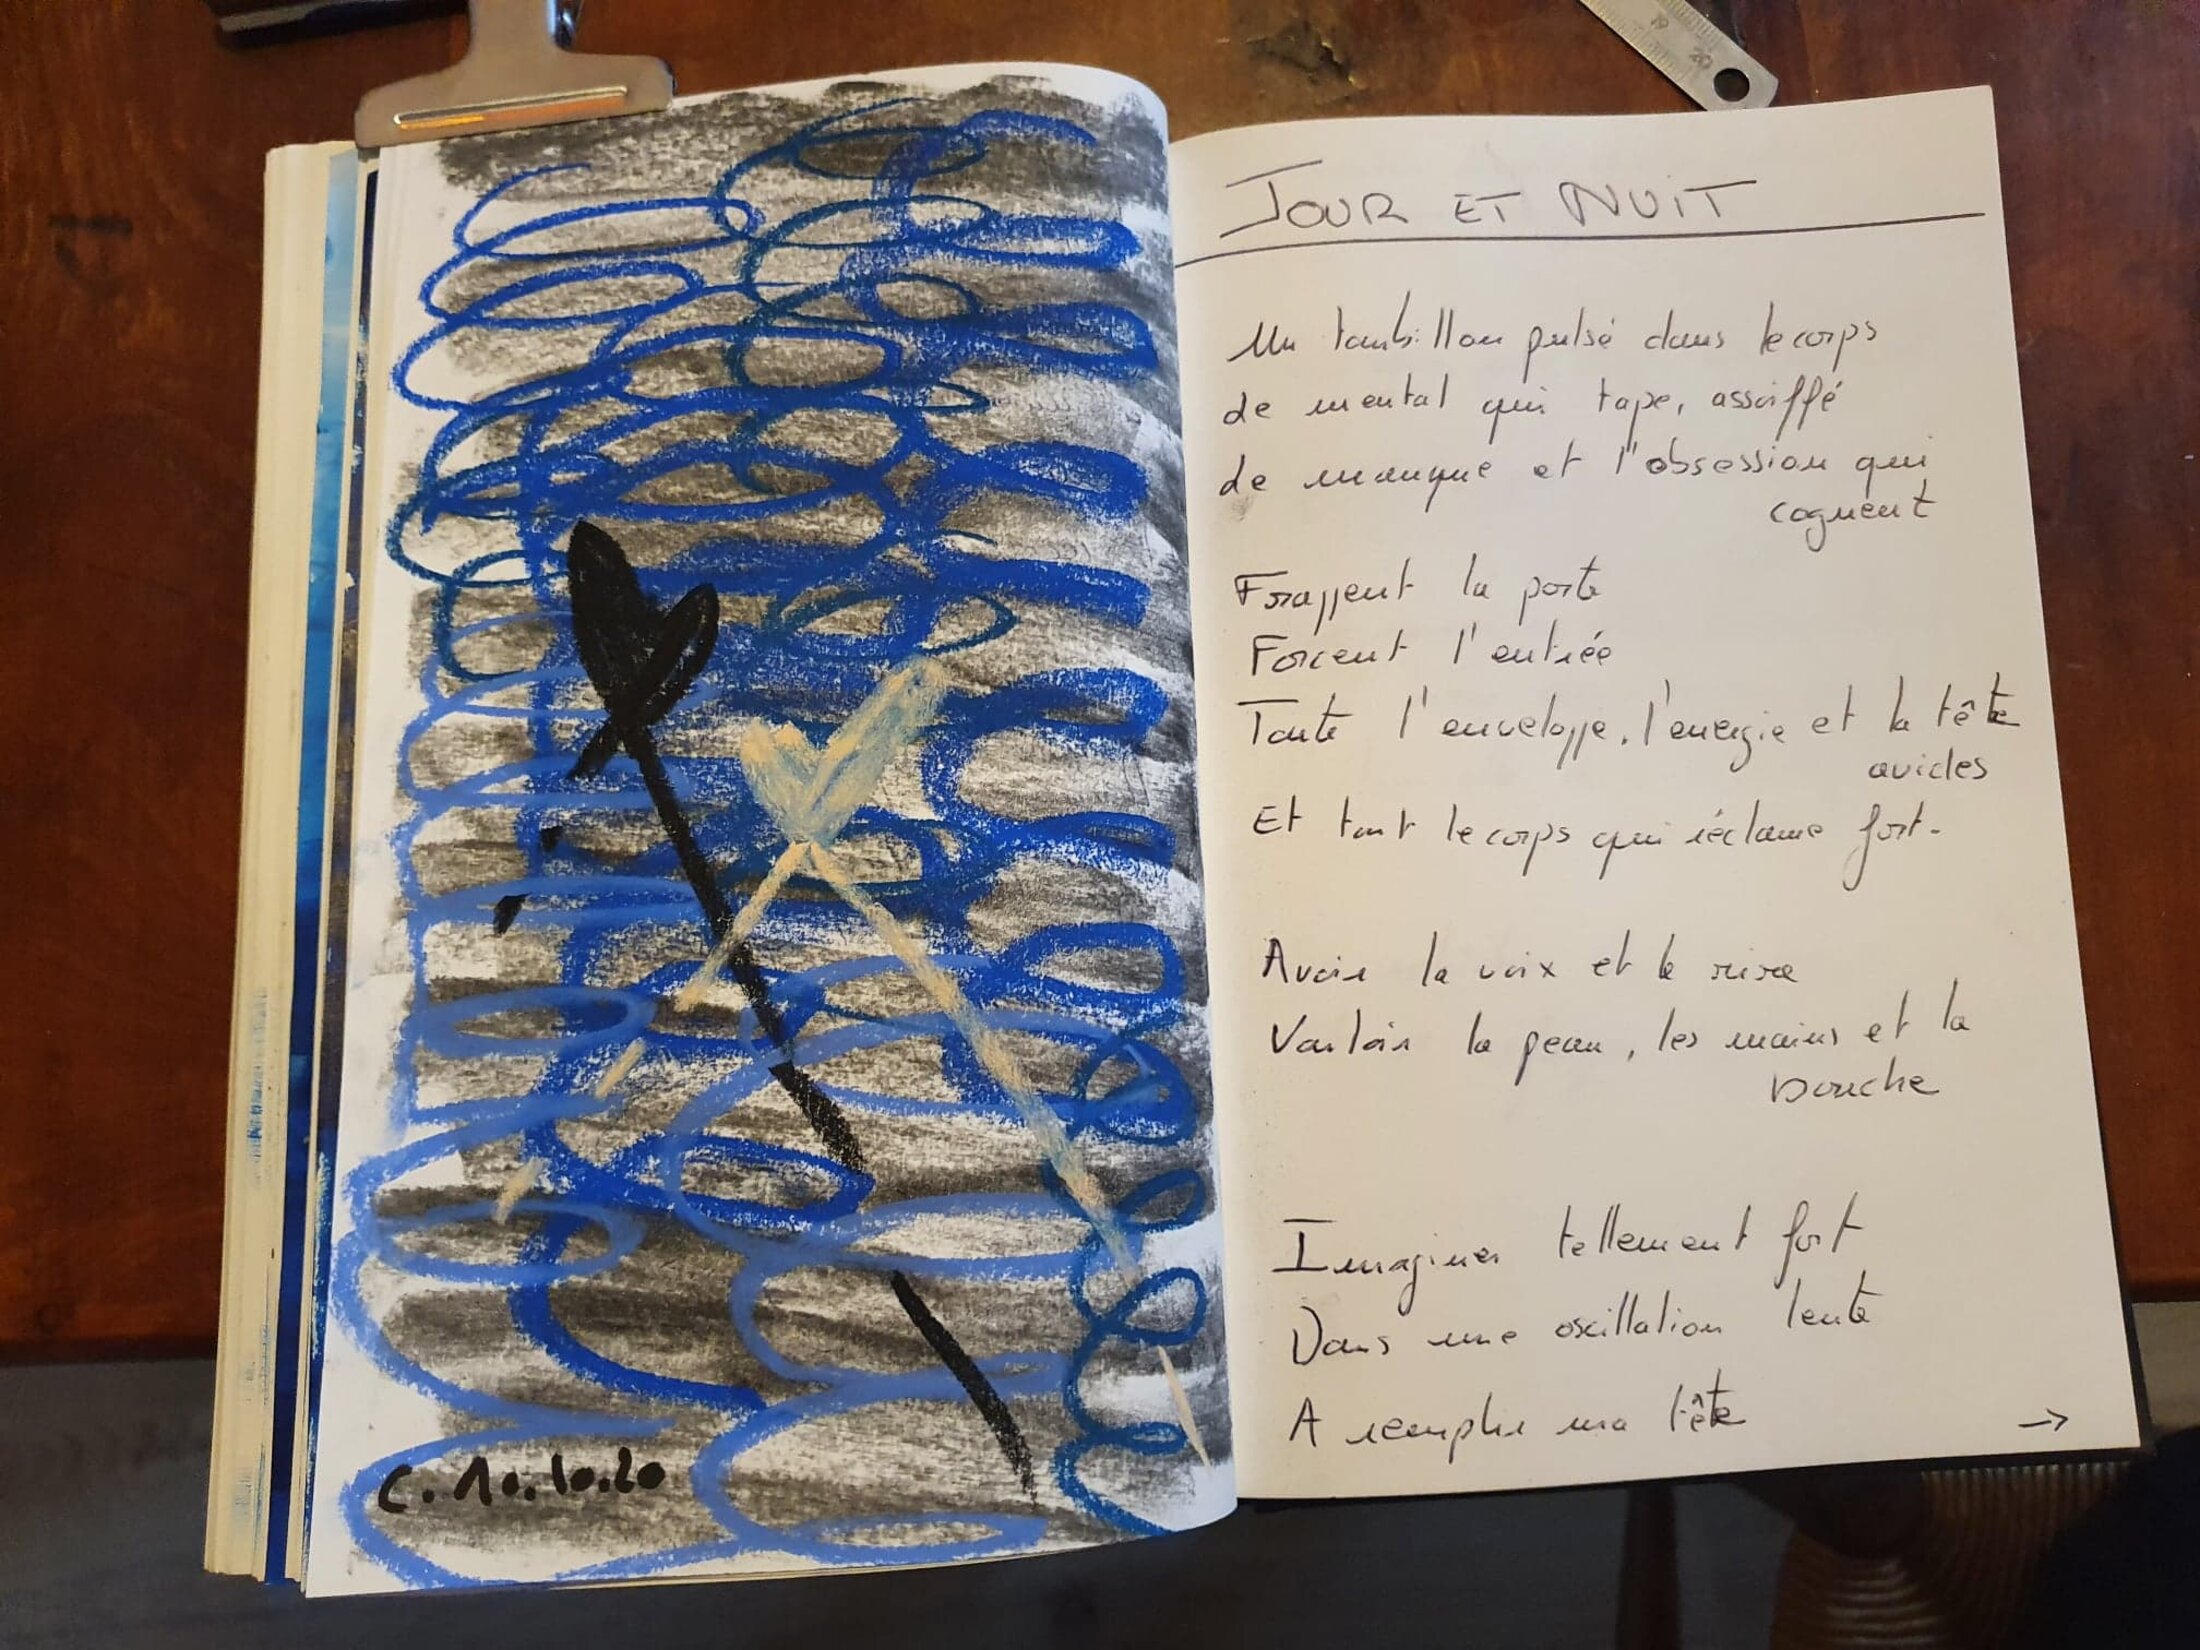 C. 10.10.20
JOUR ET NUIT
Un tourbillon pulsé dans le corps
de mental qui tape, assoiffé
de manque et l'obsession qui
cognent
Frappent la porte
Forcent l'entrée
Toute l'enveloppe, l'énergie et la tête
avides
Et tout le corps qui réclame fort.
Avoir la voix et le rire
Vouloir la peau, les mains et la
bouche
Imaginer tellement fort
Dans une oscillation lente
A remplir ma tête
→
19 20